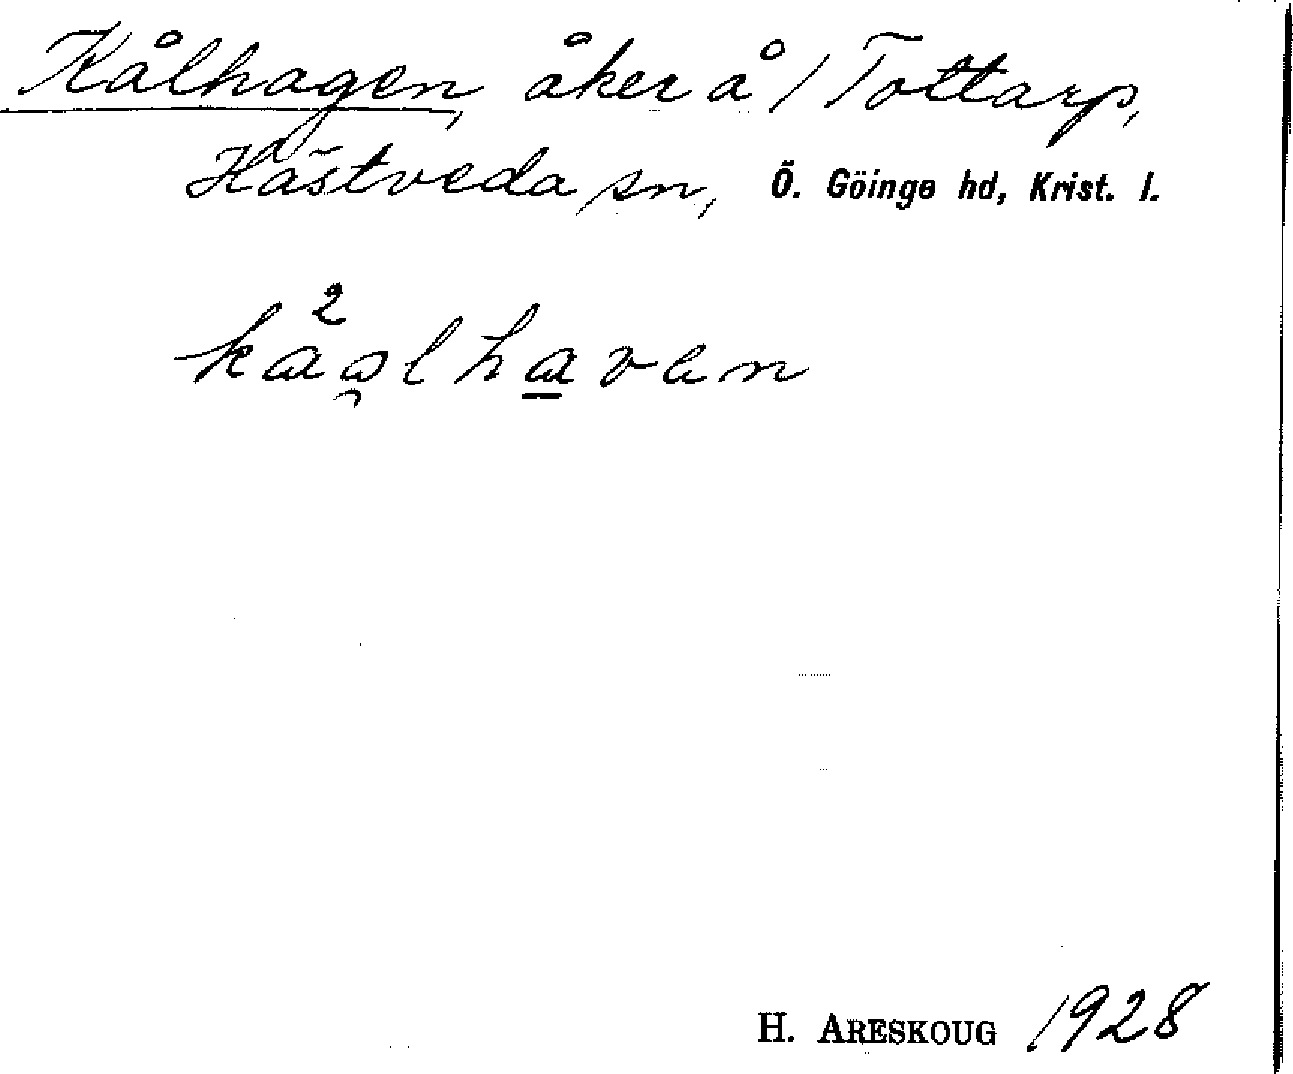 Kålhagen, åker å 1 Tottarp,
Hästveda sn, Ö. Göinge hd, Krist. l.
H. ARESKOUG 1928